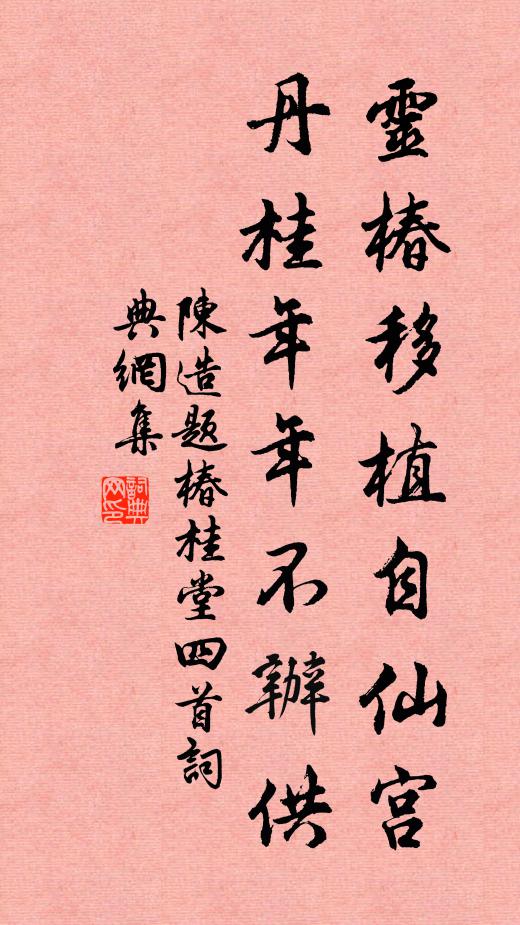 靈椿移植自仙宫
丹桂年年不辦供
陳造題椿桂堂四首詞
典網集
詞典
网印